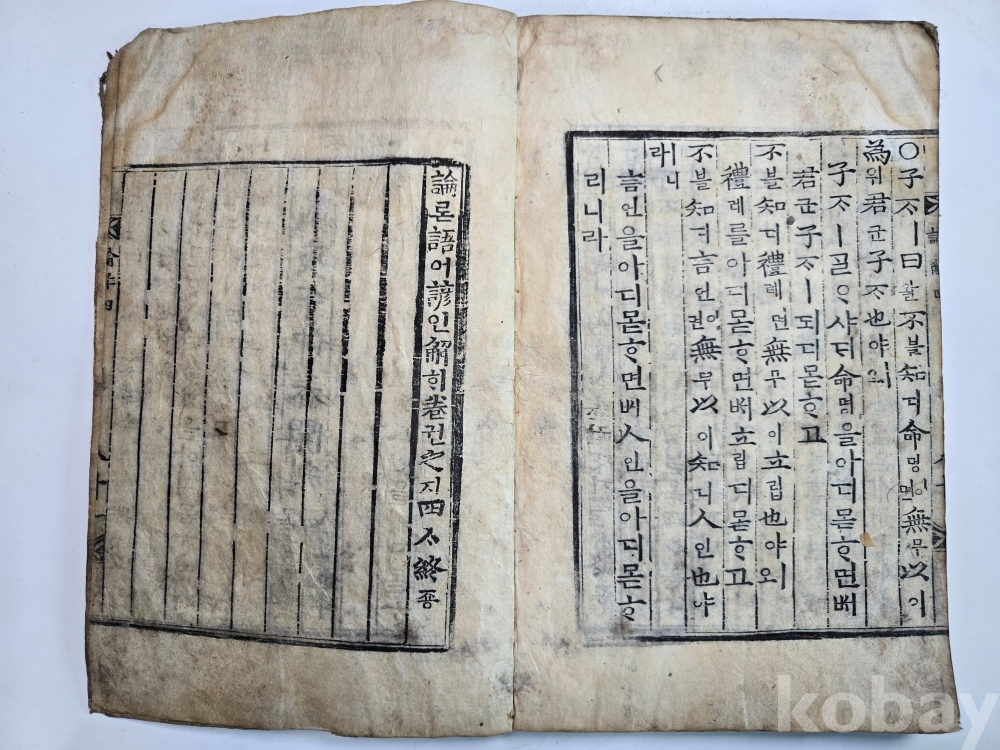 ○子ᄌᆞㅣ曰왈不블知디命명이면無무以이
為위君군子ᄌᆞ也야ㅣ오
子ᄌᆞㅣᄀᆞᆯᄋᆞ샤ᄃᆡ命명을아디몯ᄒᆞ면ᄡᅥ
君군子ᄌᆞㅣ되디몯ᄒᆞ고
不블知디禮례면無무以이立립也야ㅣ오
禮례를아디몯ᄒᆞ면ᄡᅥ立립디몯ᄒᆞ고
不블知디言언이면無무以이知디人인也야
ㅣ니라
言언을아디몯ᄒᆞ면ᄡᅥ人인을아디몯ᄒᆞ
리니라
論론語어諺언解ᄒᆡ卷권之지四ᄉᆞ終죵
kobay